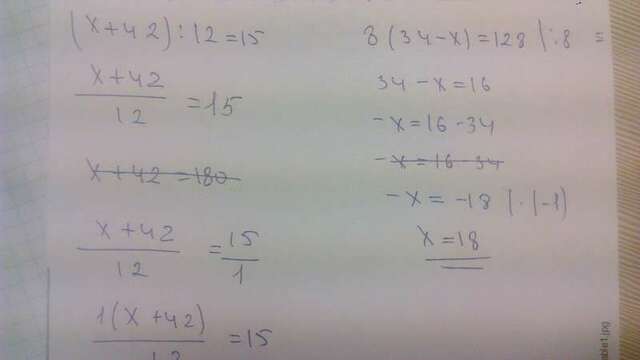 (x+42):12=15
x+42
12
=15
x+42=180
x+42
12
=
15
1
1(x+42)
12
=15
8(34-x)=128 |:8 =
34-x=16
-x=16-34
-x=16-34
-x=-18 |·(-1)
x=18
table1.jpg